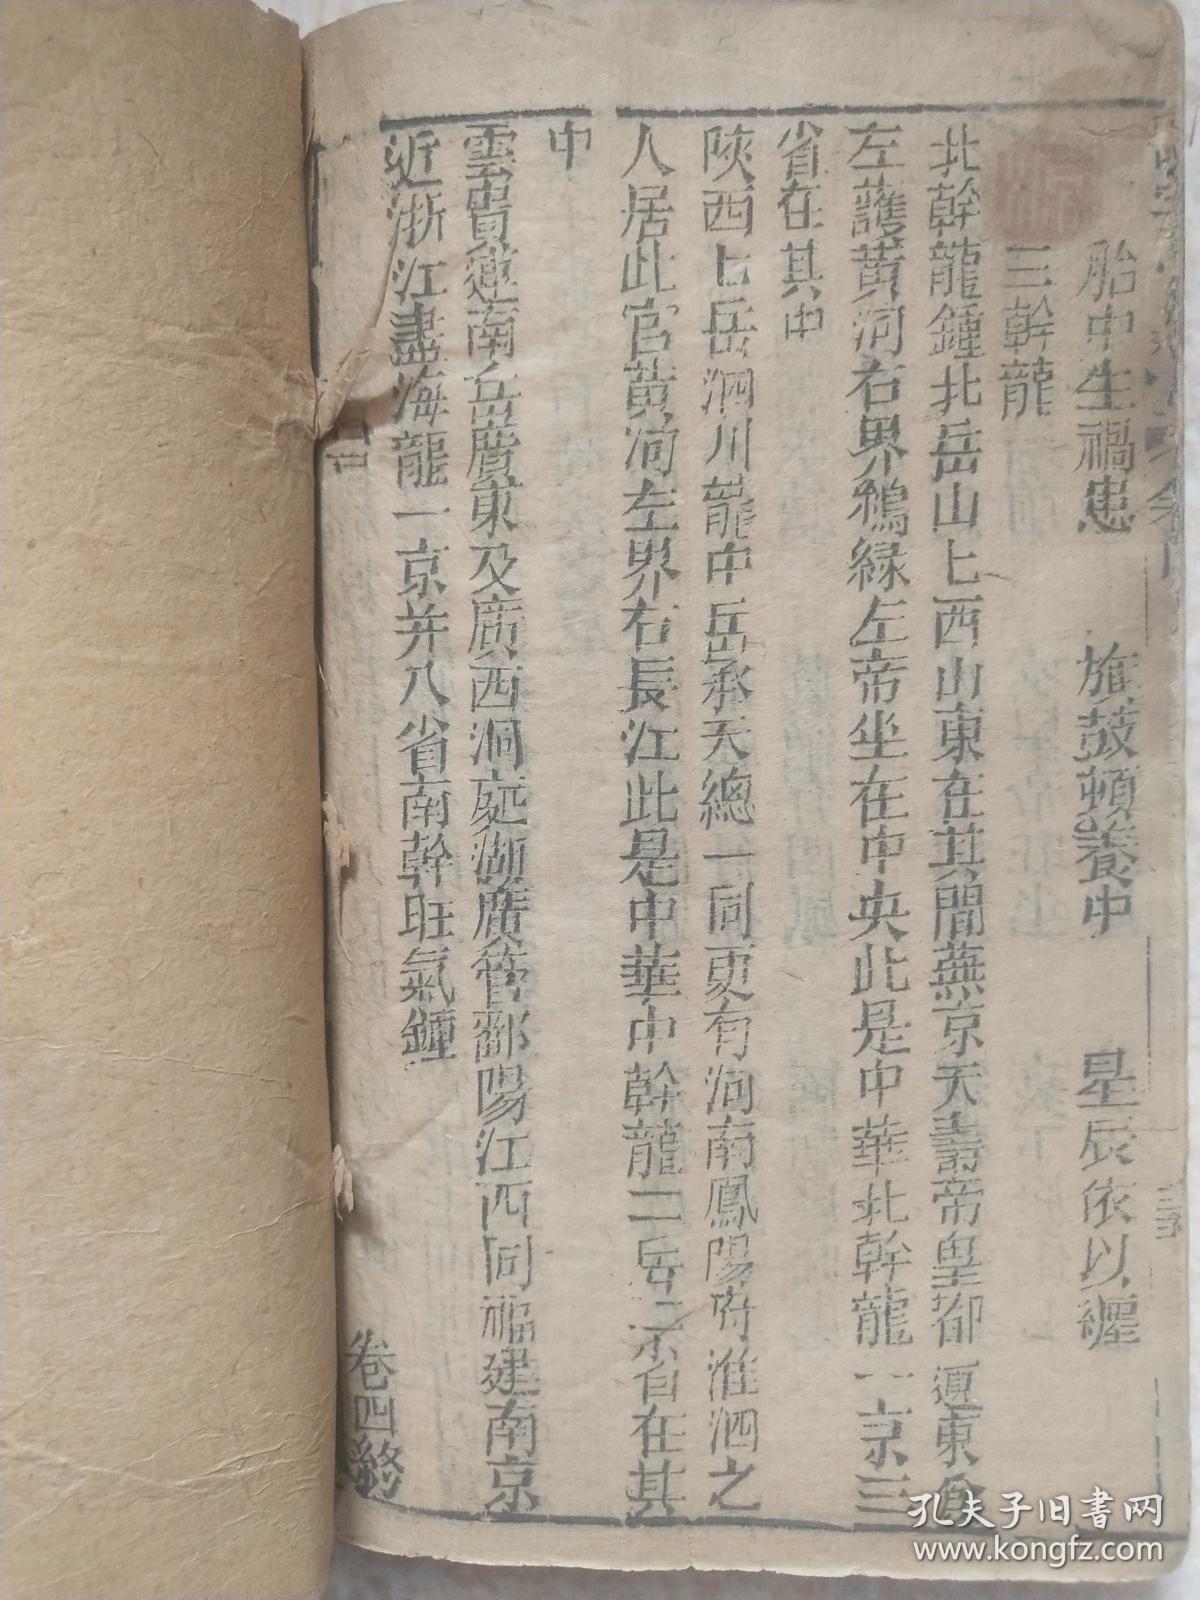 胎中生禍患　旗鼓頓養中　星辰依以纒
三幹龍
北幹龍鍾北岳山上西山東在其間燕京天壽帝皇都遼東
左護黃河右界鴨綠左帝坐在中央此是中華北幹龍一京三
省在其中
陝西上岳泗川龍中岳承天總一同更有河南鳳陽府淮泗之
人居此官黃河左界右長江此是中華中幹龍二岳二京 省在其
中
雲貴連南岳廣東及廣西洞庭湖廣管鄱陽江西同福建南京
近浙江盡海龍一京并八省南幹旺氣鍾
卷四終
孔夫子旧书网
www.kongfz.com